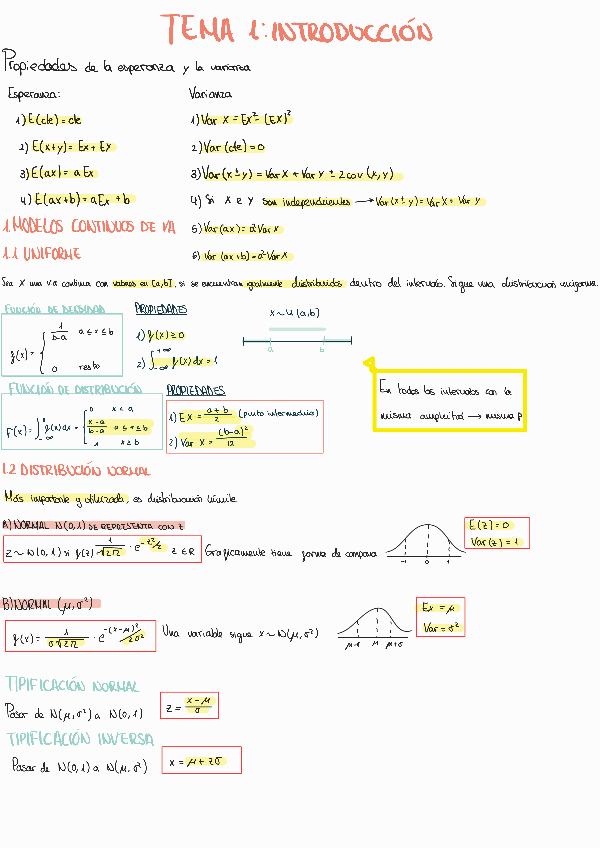 TEMA 1: INTRODUCCIÓN
Propiedades de la esperanza y la varianza
Esperanza:
1) E(cte) = cte
2) E(x+y) = Ex + Ey
3) E(ax) = a Ex
4) E(ax+b) = a Ex + b
Varianza
1) Var X = Ex² - (EX)²
2) Var (cte) = 0
3) Var(x ± y) = Var X + Var Y ± 2cov (x, y)
4) Si X e Y son independientes → Var(x ± y) = Var X + Var Y
5) Var(ax) = a² Var X
6) Var (ax+b) = a² Var X
1. MODELOS CONTINUOS DE VA
1.1 UNIFORME
Sea X una va continua con valores en [a,b], si se encuentran igualmente distribuidos dentro del intervalo. Sigue una distribución uniforme.
FUNCIÓN DE DENSIDAD
f(x) = { 1/(b-a) a ≤ x ≤ b
0 resto
PROPIEDADES
1) f(x) ≥ 0
2) ∫_{-∞}^{+∞} f(x) dx = 1
x ~ U (a,b)
a b
FUNCIÓN DE DISTRIBUCIÓN
F(x) = ∫_{-∞}^{x} f(x) dx = { 0 x < a
(x-a)/(b-a) a ≤ x ≤ b
1 x ≥ b
PROPIEDADES
1) EX = (a+b)/2 (punto intermedio)
2) Var X = (b-a)²/12
En todos los intervalos con la
misma amplitud → misma p
1.2 DISTRIBUCIÓN NORMAL
Más importante y utilizada, es distribución límite
A) NORMAL N(0,1) SE REPRESENTA CON Z
Z ~ N(0,1) si f(z) 1/√2π · e^{-z²/2} z ∈ R
Graficamente tiene forma de campana
-1 0 1
E(z) = 0
Var(z) = 1
B) NORMAL (μ, σ²)
f(x) = 1/(σ√2π) · e^{-(x-μ)²/2σ²}
Una variable sigue x ~ N(μ, σ²)
μ-σ μ μ+σ
Ex = μ
Var = σ²
TIPIFICACIÓN NORMAL
Pasar de N(μ, σ²) a N(0,1)
z = (x - μ)/σ
TIPIFICACIÓN INVERSA
Pasar de N(0,1) a N(μ, σ²)
x = μ + zσ